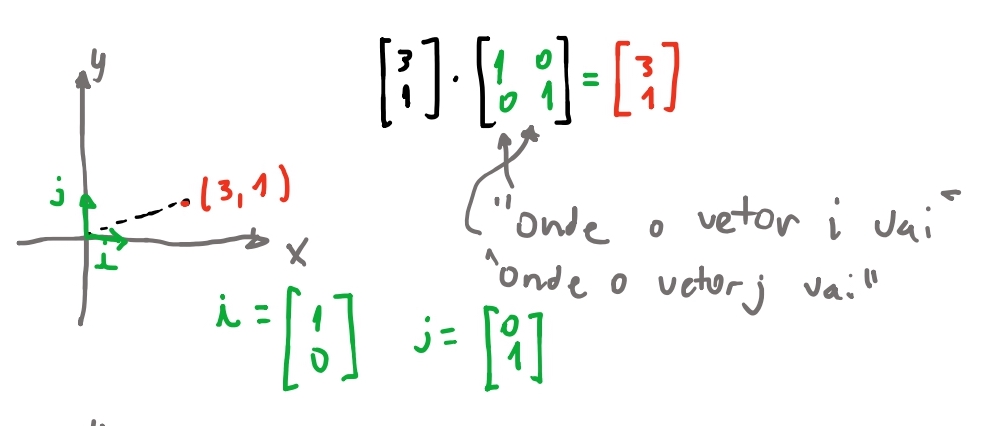 y
[3 1] · [1 0 0 1] = [3 1]
j
(3, 1)
i
x
"Onde o vetor i vai"
"onde o vetor j vai"
i = [1 0] j = [0 1]